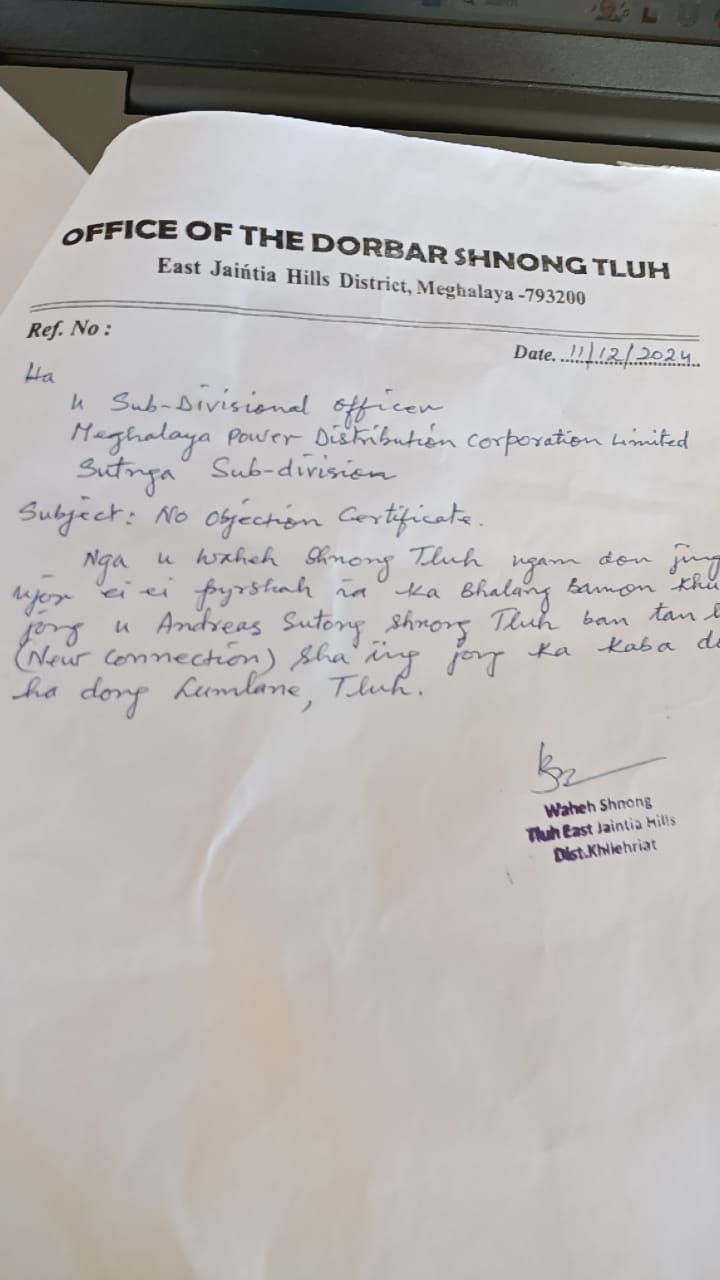 OFFICE OF THE DORBAR SHNONG TLUH
East Jaińtia Hills District, Meghalaya -793200
Ref. No :
Date. 11/12/2024
Ha
u Sub-Divisional Officer
Meghalaya Power Distribution Corporation Limited
Sutnga Sub-division
Subject: No Objection Certificate.
Nga u Waheh Shnong Tluh ngam don jing
ujor ei ei pyrshah ïa ka Bhalang Bamon Khu
jong u Andreas Sutong Shnong Tluh ban tan
(New Connection) sha ïng jong ka kaba
ha dong Lumlane, Tluh.
Waheh Shnong
Tluh East Jaintia Hills
Dist.Khliehriat